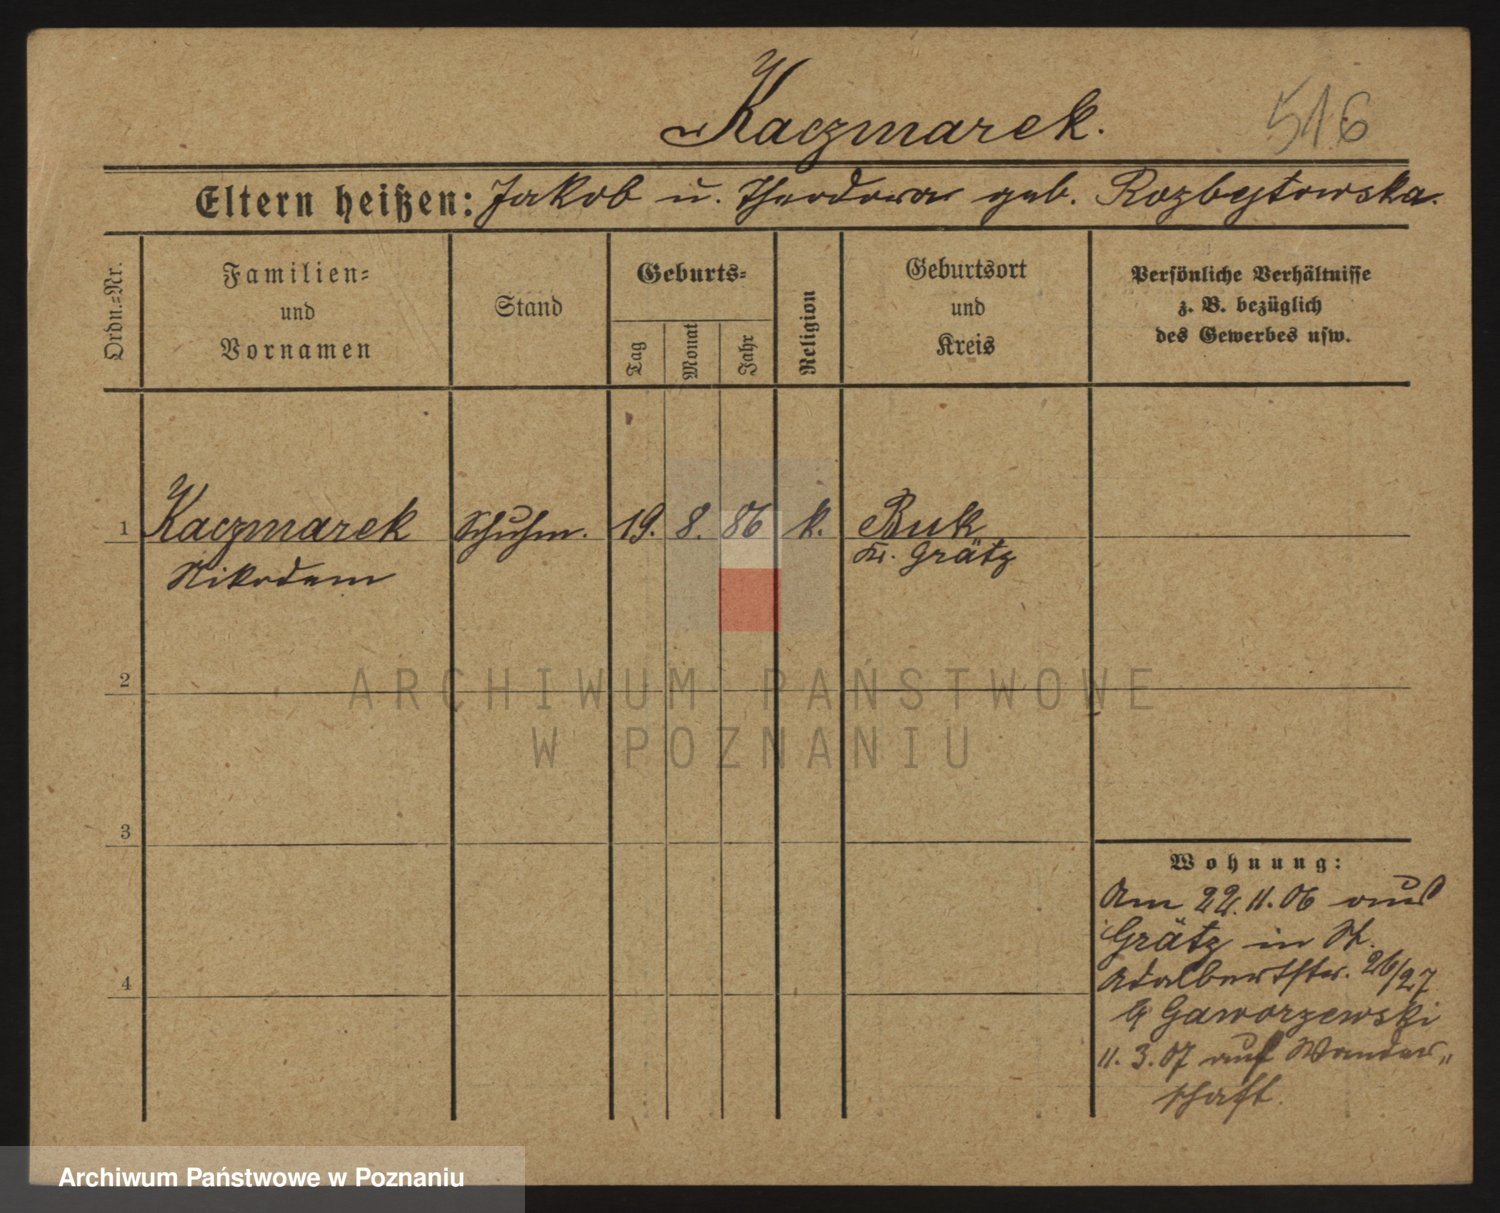 Kaczmarek.
516
Eltern heißen: Jakob u. Theodora geb. Rozbejtowska.
Ordn.-Nr.
Familien-
und
Vornamen
Stand
Geburts-
Tag
Monat
Jahr
Religion
Geburtsort
und
Kreis
Persönliche Verhältnisse
z. B. bezüglich
des Gewerbes usw.
1 Kaczmarek Schuhm. 19. 8. 86 k. Buk
Nikodem Kr. Grätz
2
ARCHIWUM PAŃSTWOWE
W POZNANIU
3
Wohnung:
Am 22.11.06 aus
Grätz in St.
4
Adalbertstr. 26/27
b Gaworzewski
11.3.07 auf Wander-
schaft.
Archiwum Państwowe w Poznaniu